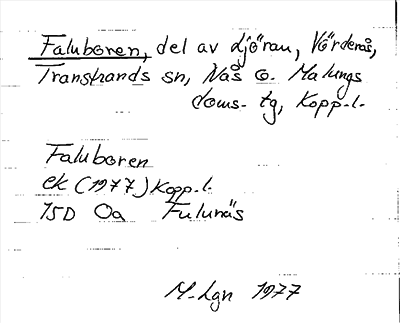 Faluboren, del av Ljöran, Vörderås,
Transtrands sn, Nås o. Malungs
doms. tg, Kopp.l.
Faluboren
ek (1977) Kopp.l.
15D Oa Fulunäs
M-Lgn 1977